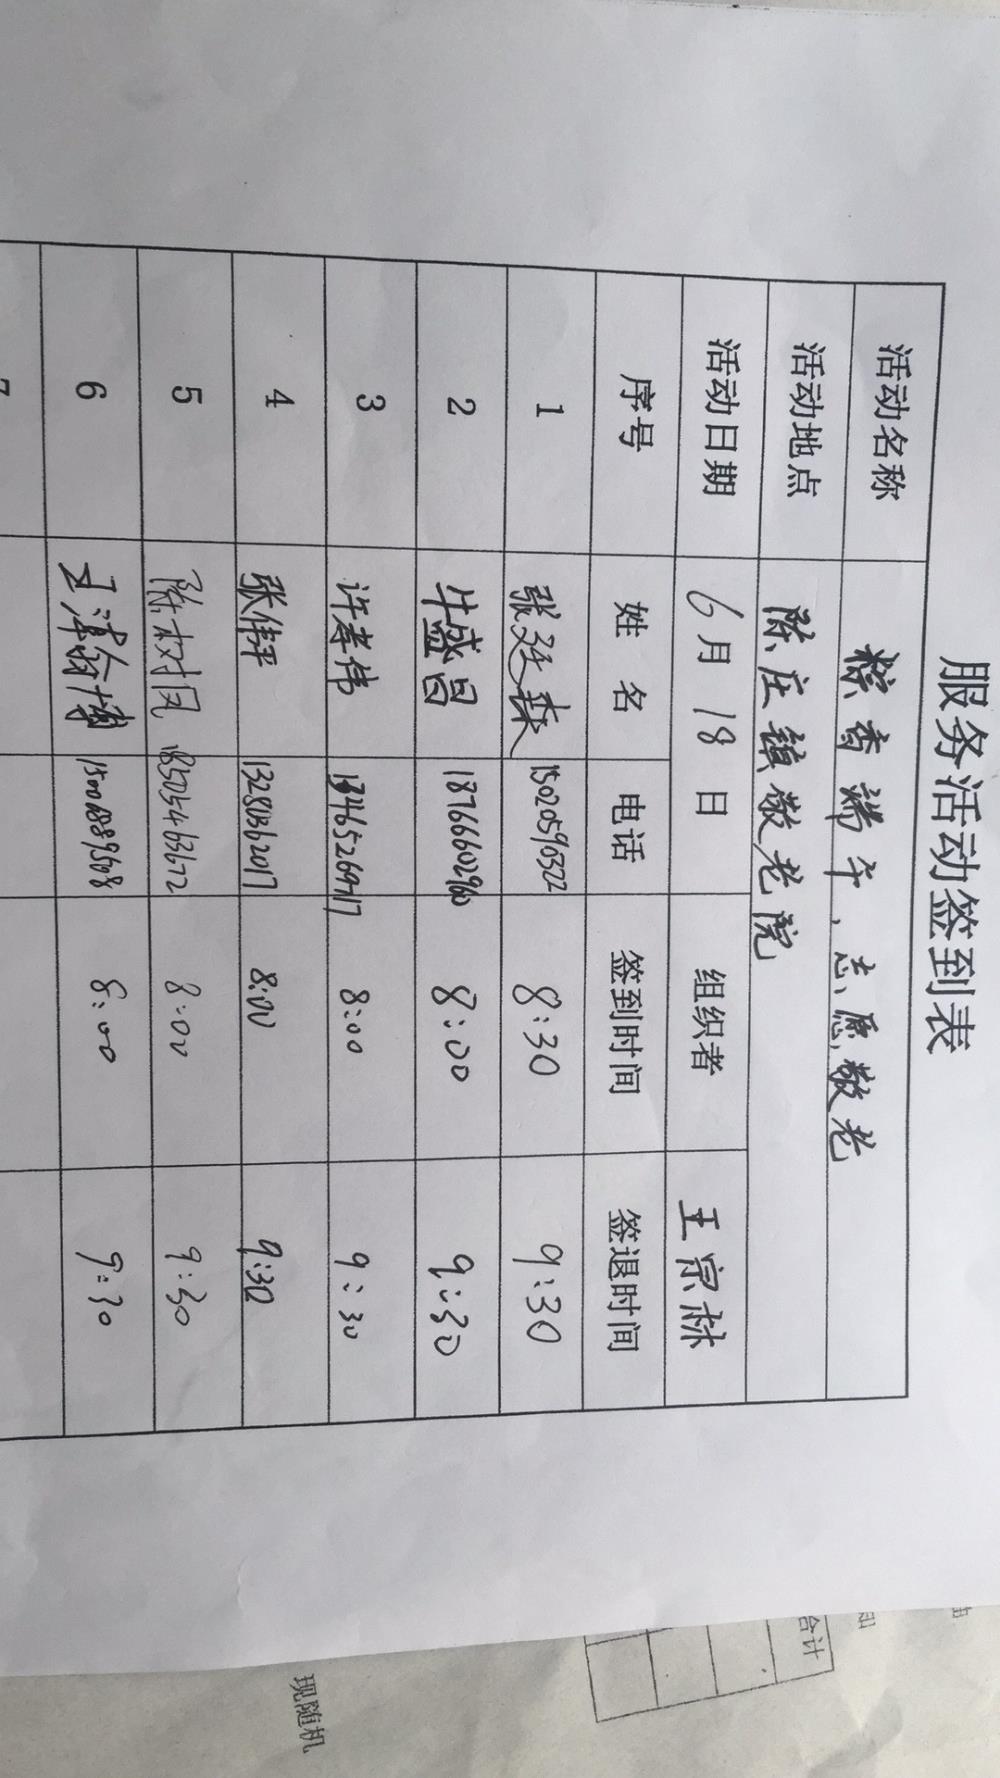 服务活动签到表
活动名称 粽香端午，志愿敬老
活动地点 陈庄镇敬老院
活动日期 6月18日 组织者 王宗林
序号 姓名 电话 签到时间 签退时间
1 张廷森 15020590322 8:30 9:30
2 牛盛昌 18766602960 8:00 9:30
3 许孝伟 13465269717 8:00 9:30
4 张伟平 13280362017 8:00 9:30
5 陈树凤 18505463672 8:00 9:30
6 王瀚博 8:00 9:30
7
合计
现随机